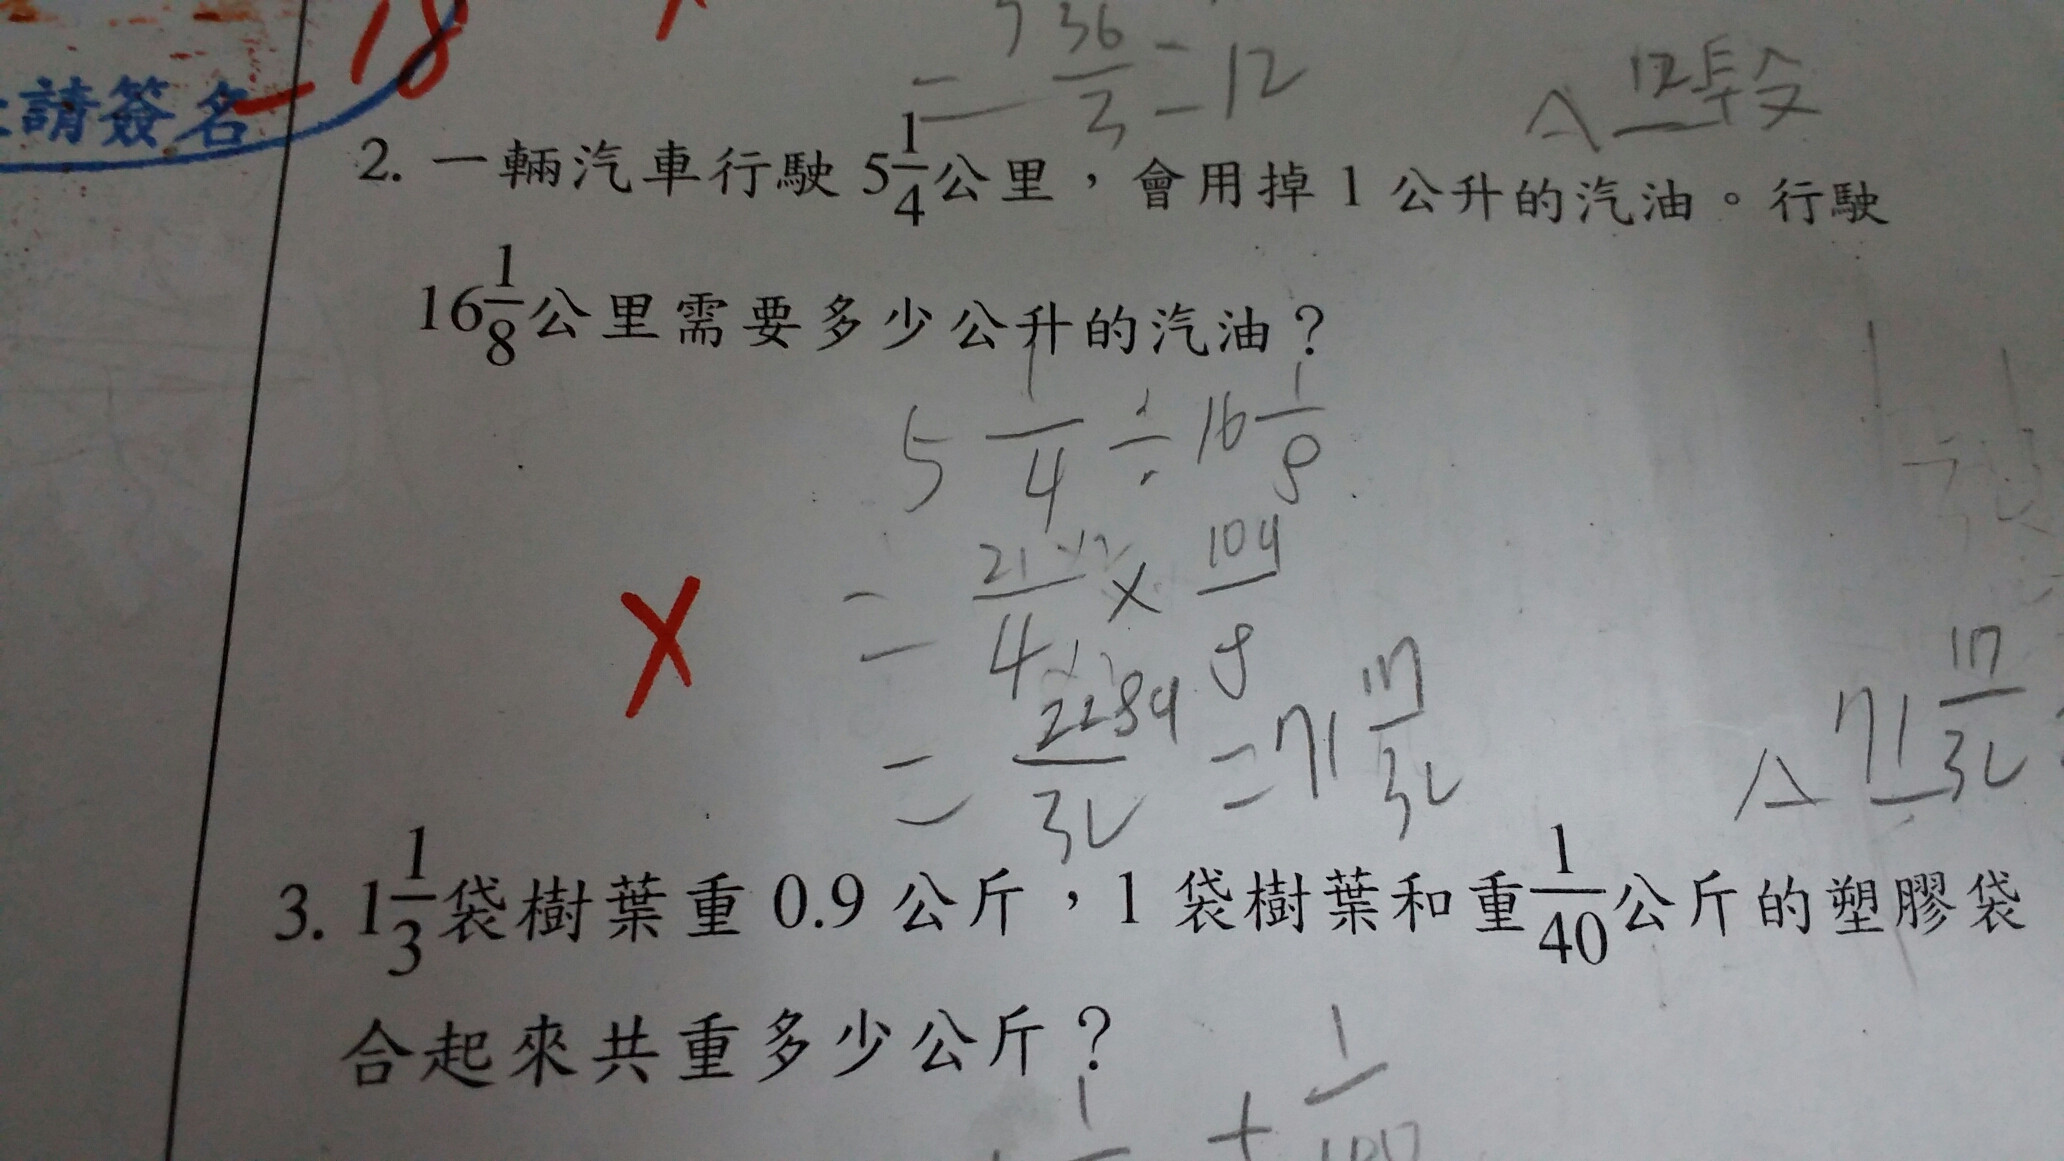 -18
請簽名
= 36/3 = 12
2. 一輛汽車行駛 5 1/4 公里，會用掉 1 公升的汽油。行駛
16 1/8 公里需要多少公升的汽油？
5 1/4 ÷ 16 1/8
= 21/4 × 104/8
= 2284/32 = 71 17/32
A 71 17/32
3. 1 1/3 袋樹葉重 0.9 公斤，1 袋樹葉和重 1/40 公斤的塑膠袋
合起來共重多少公斤？